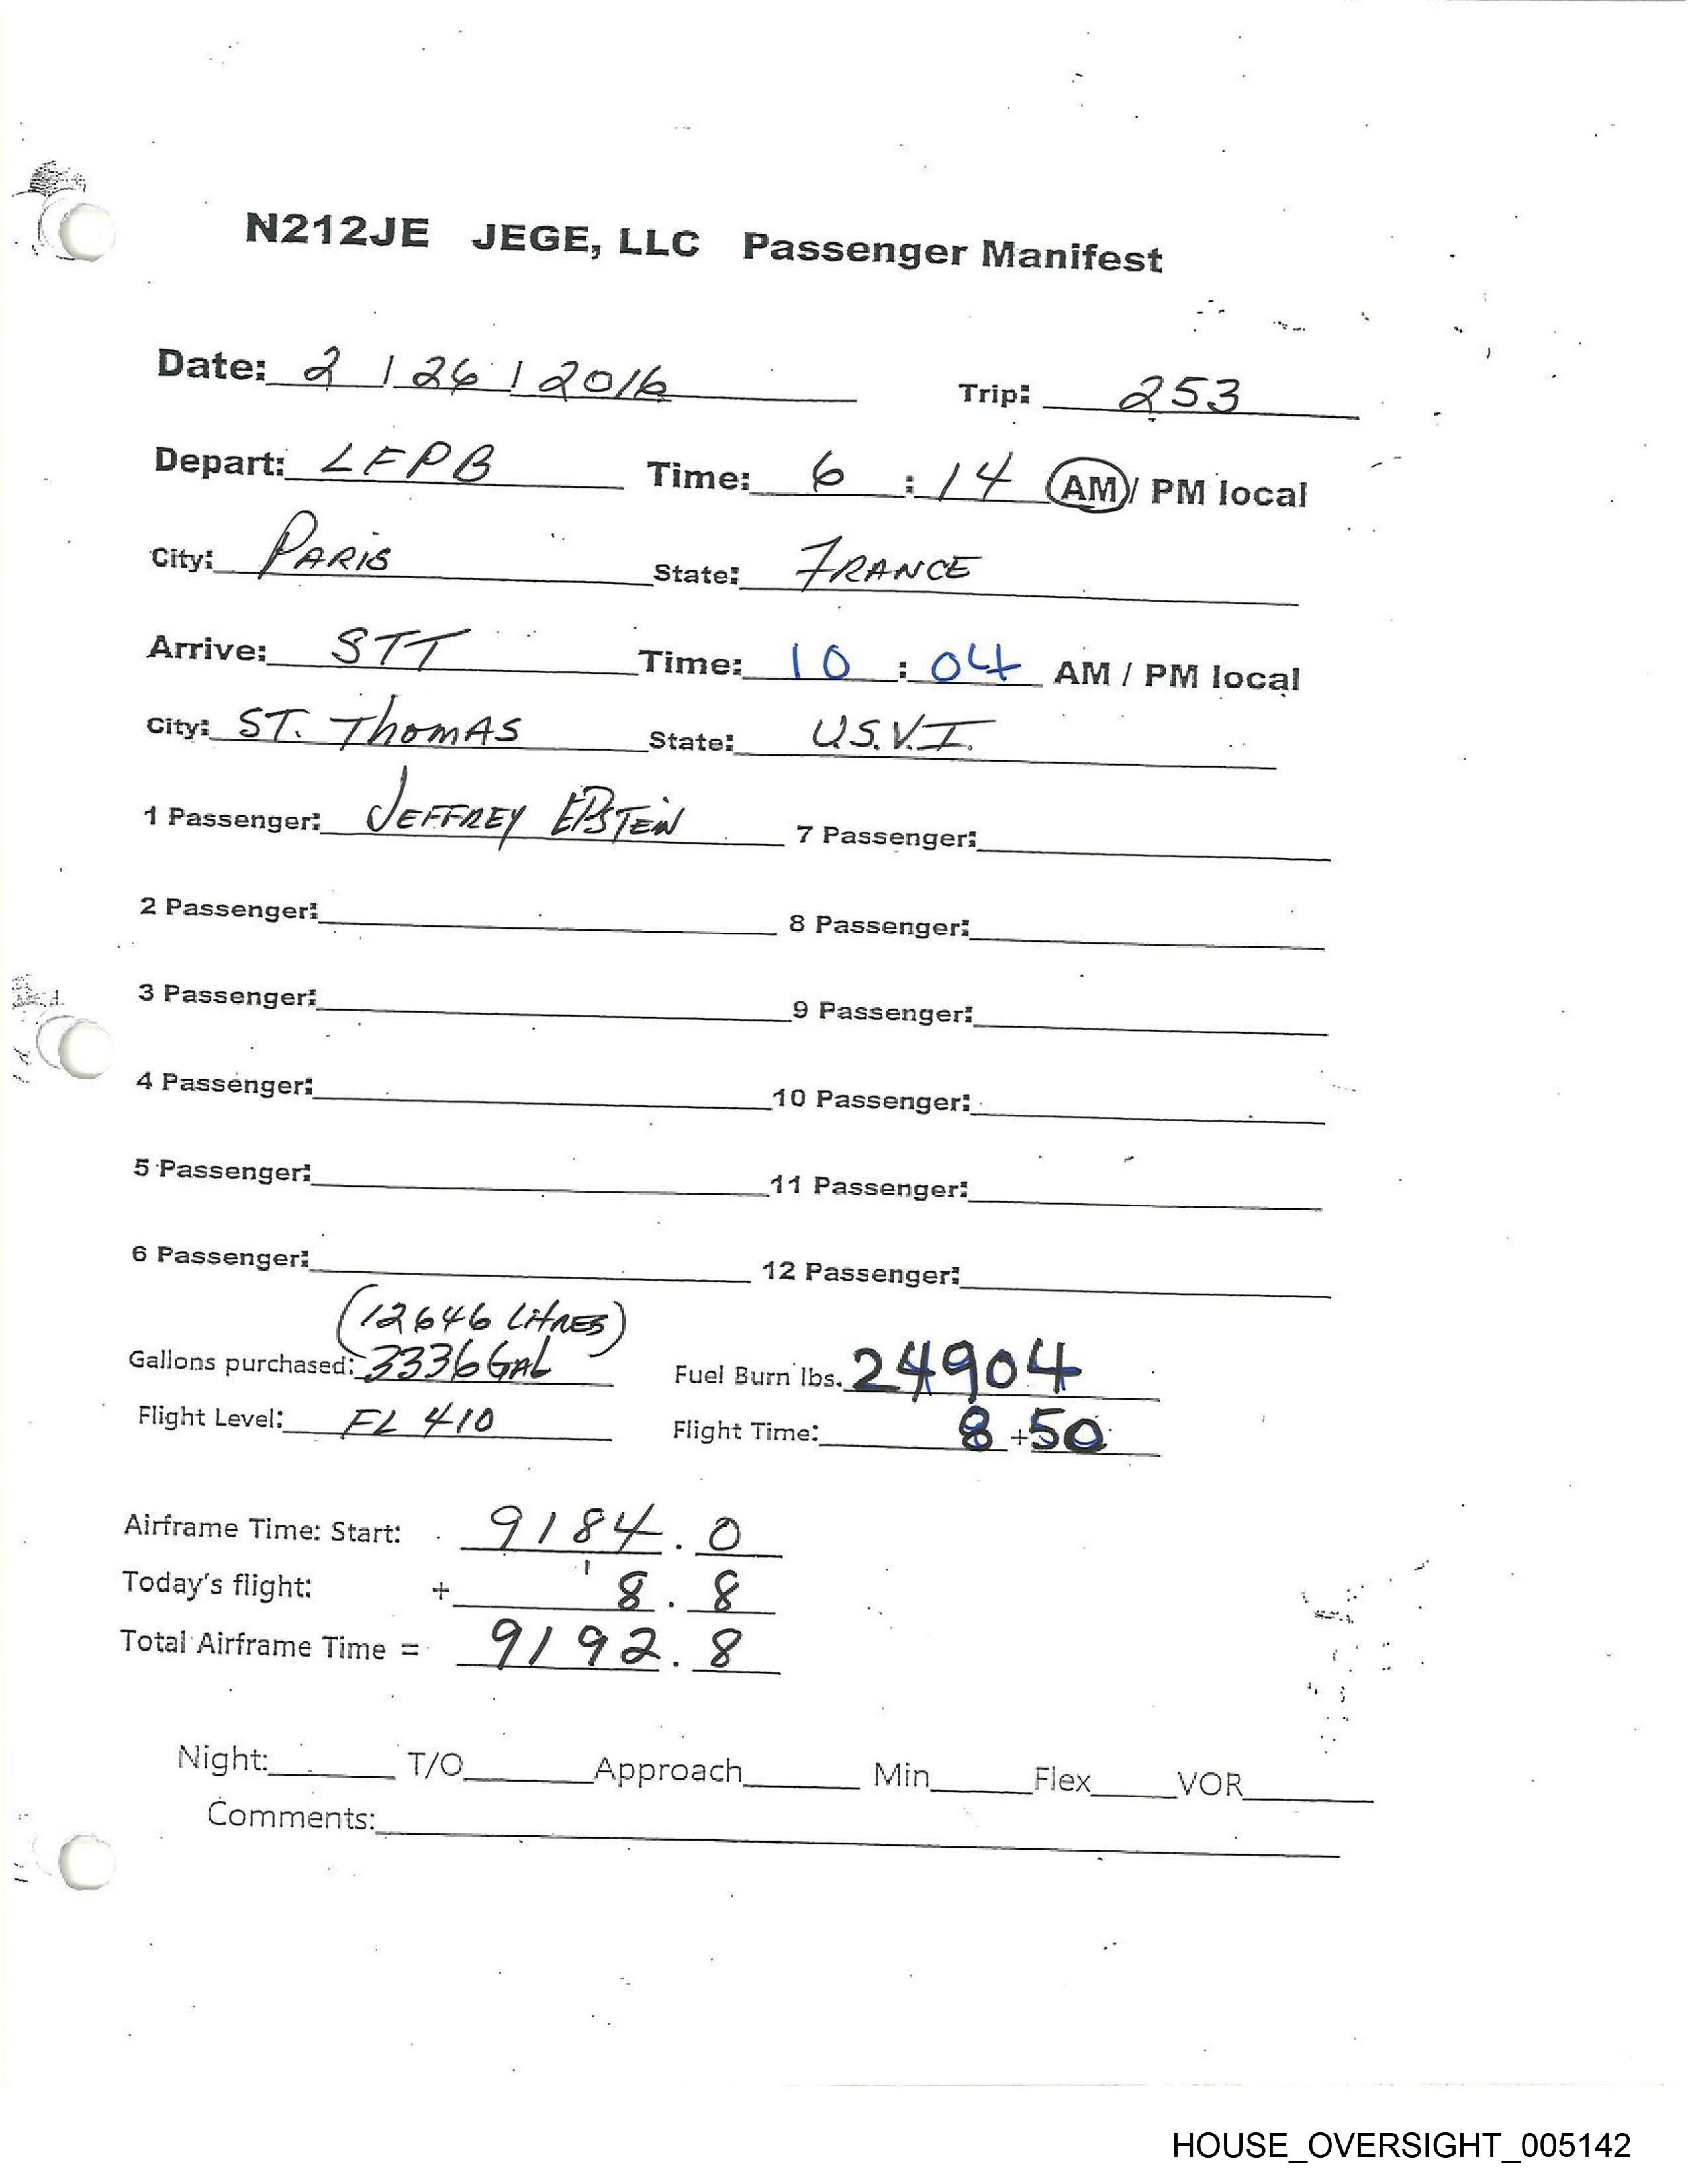 N212JE JEGE, LLC Passenger Manifest
Date: 2 / 26 / 2016 Trip: 253
Depart: LFPB Time: 6 : 14 AM / PM local
City: PARIS State: FRANCE
Arrive: STT Time: 10 : 04 AM / PM local
City: ST. THOMAS State: U.S.V.I.
1 Passenger: JEFFREY EPSTEIN 7 Passenger:
2 Passenger: 8 Passenger:
3 Passenger: 9 Passenger:
4 Passenger: 10 Passenger:
5 Passenger: 11 Passenger:
6 Passenger: 12 Passenger:
(12646 LITRES)
Gallons purchased: 3336 GAL Fuel Burn lbs. 24904
Flight Level: FL 410 Flight Time: 8 + 50
Airframe Time: Start: 9184 . 0
Today's flight: + 8 . 8
Total Airframe Time = 9192 . 8
Night: T/O Approach Min Flex VOR
Comments:
HOUSE_OVERSIGHT_005142